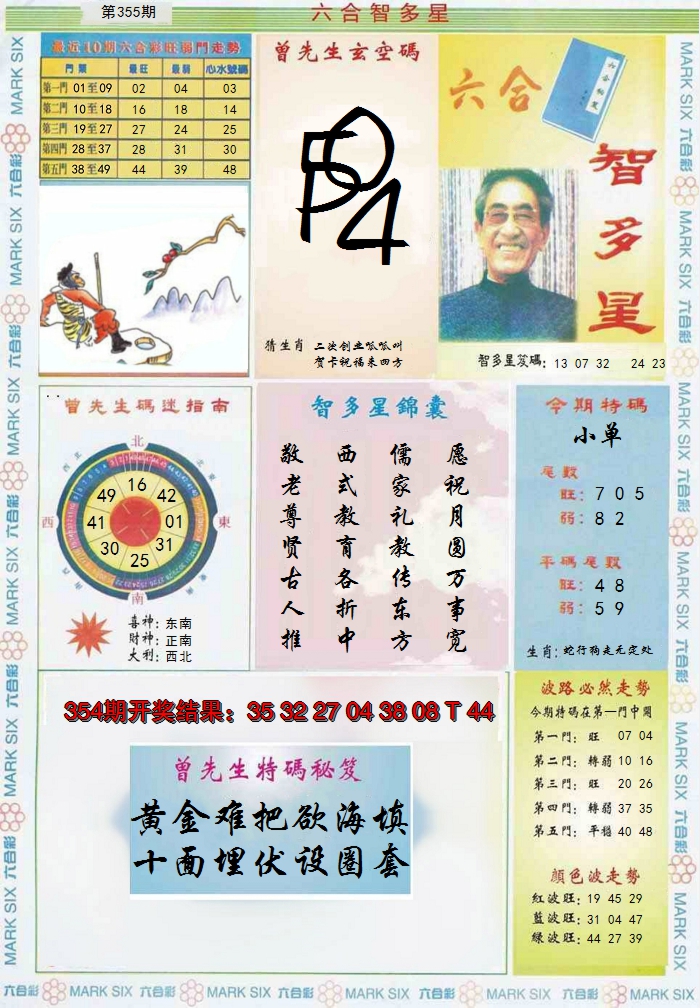 第355期
六合智多星
最近10期六合彩旺弱門走勢
門票 最旺 最弱 心水號碼
第一門 01至09 02 04 03
第二門 10至18 16 18 14
第三門 19至27 27 24 25
第四門 28至37 28 31 30
第五門 38至49 44 39 48
曾先生玄空碼
504
猜生肖 二次创业呱呱叫
贺卡祝福来四方
六合
智多星
智多星笈碼: 13 07 32 24 23
曾先生碼迷指南
北
西
東
南
16
42
01
31
25
30
41
49
喜神: 东南
財神: 正南
大利: 西北
智多星錦囊
敬老尊贤古人推
西式教育各折中
儒家礼教传东方
愿祝月圆万事宽
今期特碼
小单
尾數
旺: 7 0 5
弱: 8 2
平碼尾數
旺: 4 8
弱: 5 9
生肖: 蛇行狗走无定处
354期开奖结果: 35 32 27 04 38 08 T 44
曾先生特碼秘笈
黄金难把欲海填
十面埋伏设圈套
波路必然走势
今期特碼在第一門中開
第一門: 旺 07 04
第二門: 轉弱 10 16
第三門: 旺 20 26
第四門: 轉弱 37 35
第五門: 平穩 40 48
顏色波走勢
紅波旺: 19 45 29
藍波旺: 31 04 47
綠波旺: 44 27 39
MARK SIX 六合彩 MARK SIX 六合彩 MARK SIX 六合彩 MARK SIX 六合彩